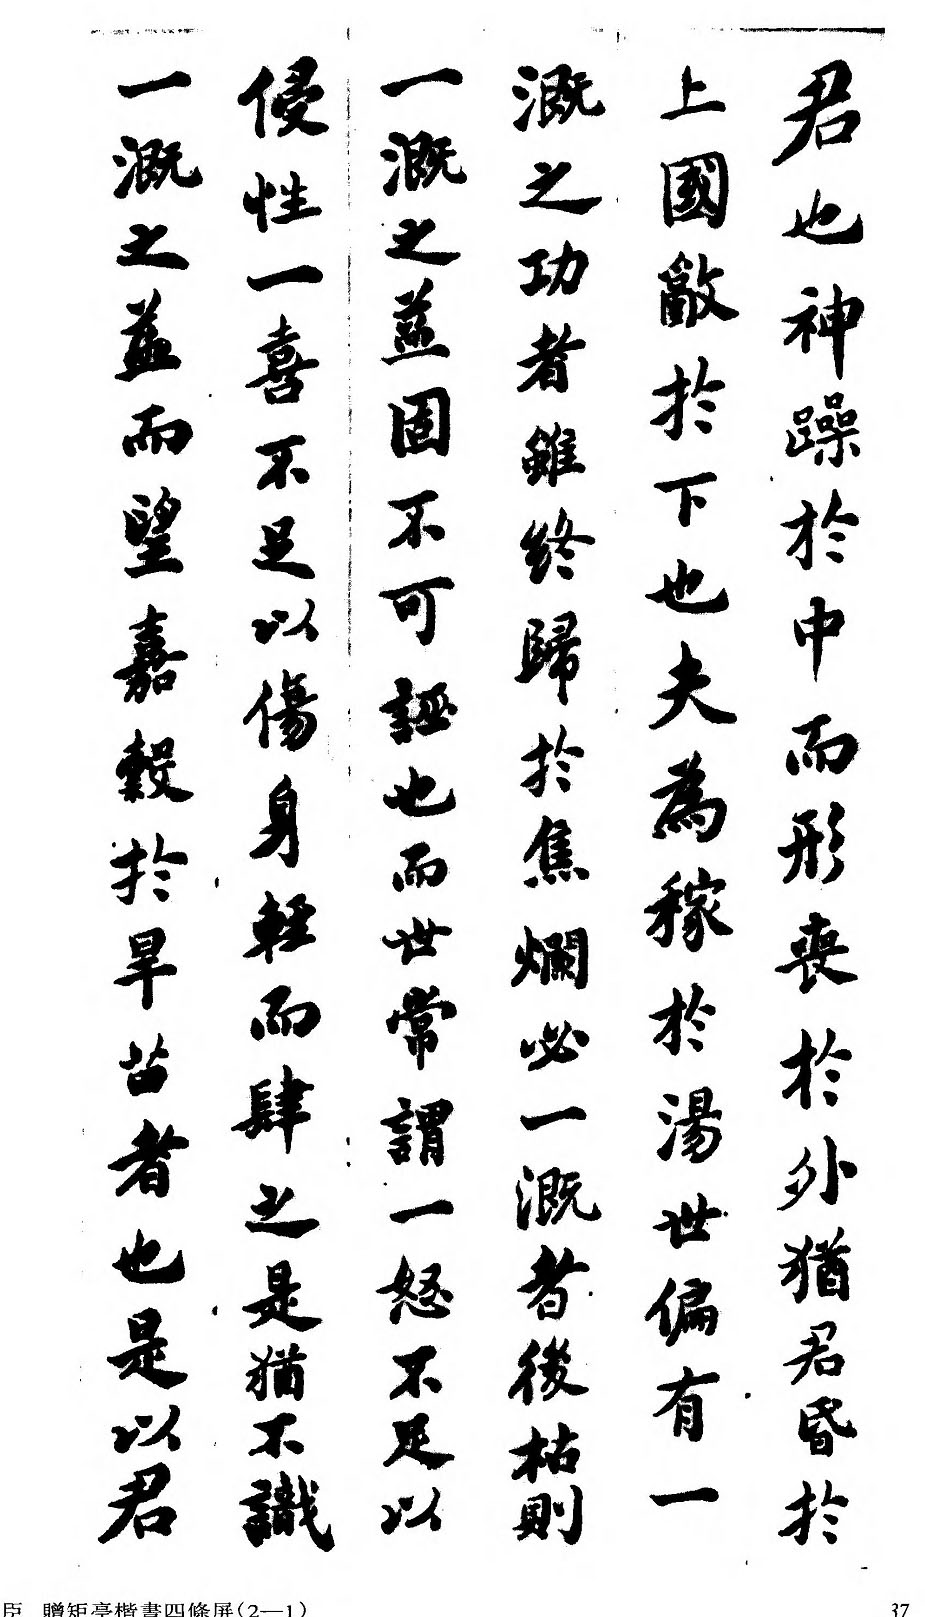 君也神躁於中而形喪於外猶君昏於
上國敵於下也夫為稼於湯世偏有一
溉之功者雖終歸於焦爛必一溉者後枯則
一溉之益固不可誣也而世常謂一怒不足以
侵性一喜不足以傷身輕而肆之是猶不識
一溉之益而望嘉穀於旱苗者也是以君
臣 贈矩亭楷書四條屏(2—1)
37